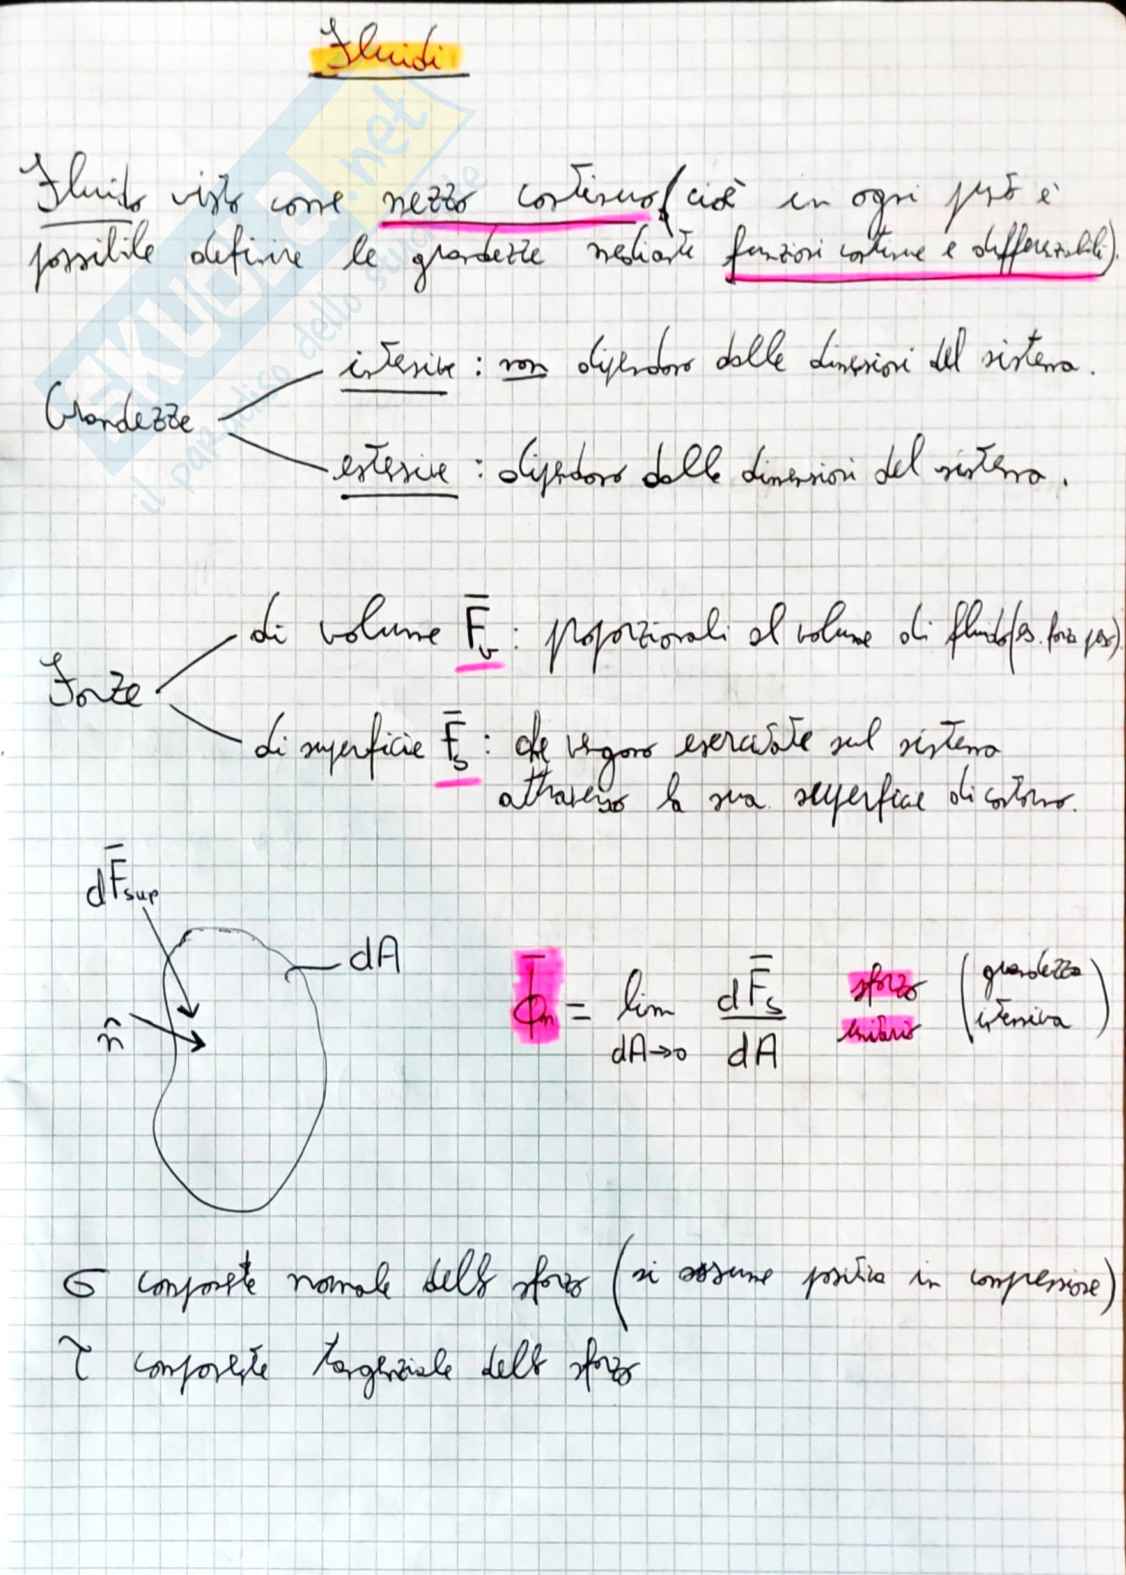 Fluidi
Fluido visto come mezzo continuo (cioè in ogni pto è
possibile definire le grandezze mediante funzioni continue e differenziabili).
Grandezze
intensive : non dipendono dalle dimensioni del sistema.
estensive : dipendono dalle dimensioni del sistema.
Forze
di volume F̅v : proporzionali al volume di fluido (es. forza peso)
di superficie F̅s : che vengono esercitate sul sistema
attraverso la sua superficie di contorno.
dF̅sup
dA
n̂
ϕ̅n = lim dA→0 dF̅s / dA sforzo unitario (grandezza intensiva)
σ componente normale dello sforzo (si assume positiva in compressione)
τ componente tangenziale dello sforzo
SKUOLA.net
il paradiso dello studente